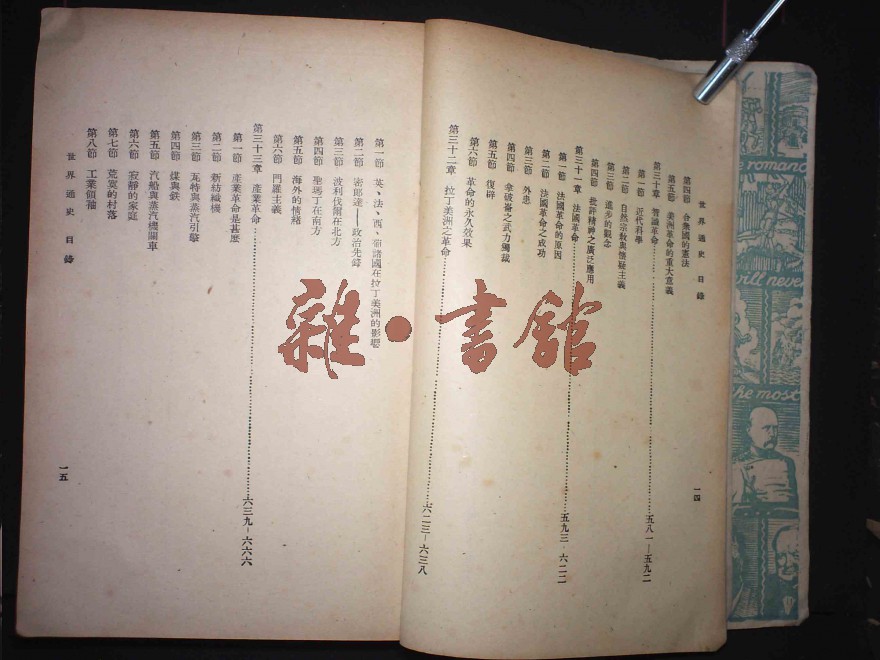 世界通史 目錄
第四節 合衆國的憲法
第五節 美洲革命的重大意義
第三十章 智識革命…五八一—五九二
第一節 近代科學
第二節 自然宗教與懷疑主義
第三節 進步的觀念
第四節 批評精神之廣泛應用
第三十一章 法國革命…五九三—六二二
第一節 法國革命的原因
第二節 法國革命之成功
第三節 外患
第四節 拿破崙之武力獨裁
第五節 復辟
第六節 革命的永久效果
第三十二章 拉丁美洲之革命…六二三—六三八
一四
第一節 英、法、西、葡諸國在拉丁美洲的影響
第二節 密郎達——政治先鋒
第三節 波利伐爾在北方
第四節 聖瑪丁在南方
第五節 海外的情緒
第六節 門羅主義
第三十三章 產業革命…六三九—六六六
第一節 產業革命是甚麽
第二節 新紡織機
第三節 瓦特與蒸汽引擎
第四節 煤與鉄
第五節 汽船與蒸汽機關車
第六節 寂靜的家庭
第七節 荒寞的村落
第八節 工業領袖
世界通史 目錄
一五
雜·書館
romand
will never
the most